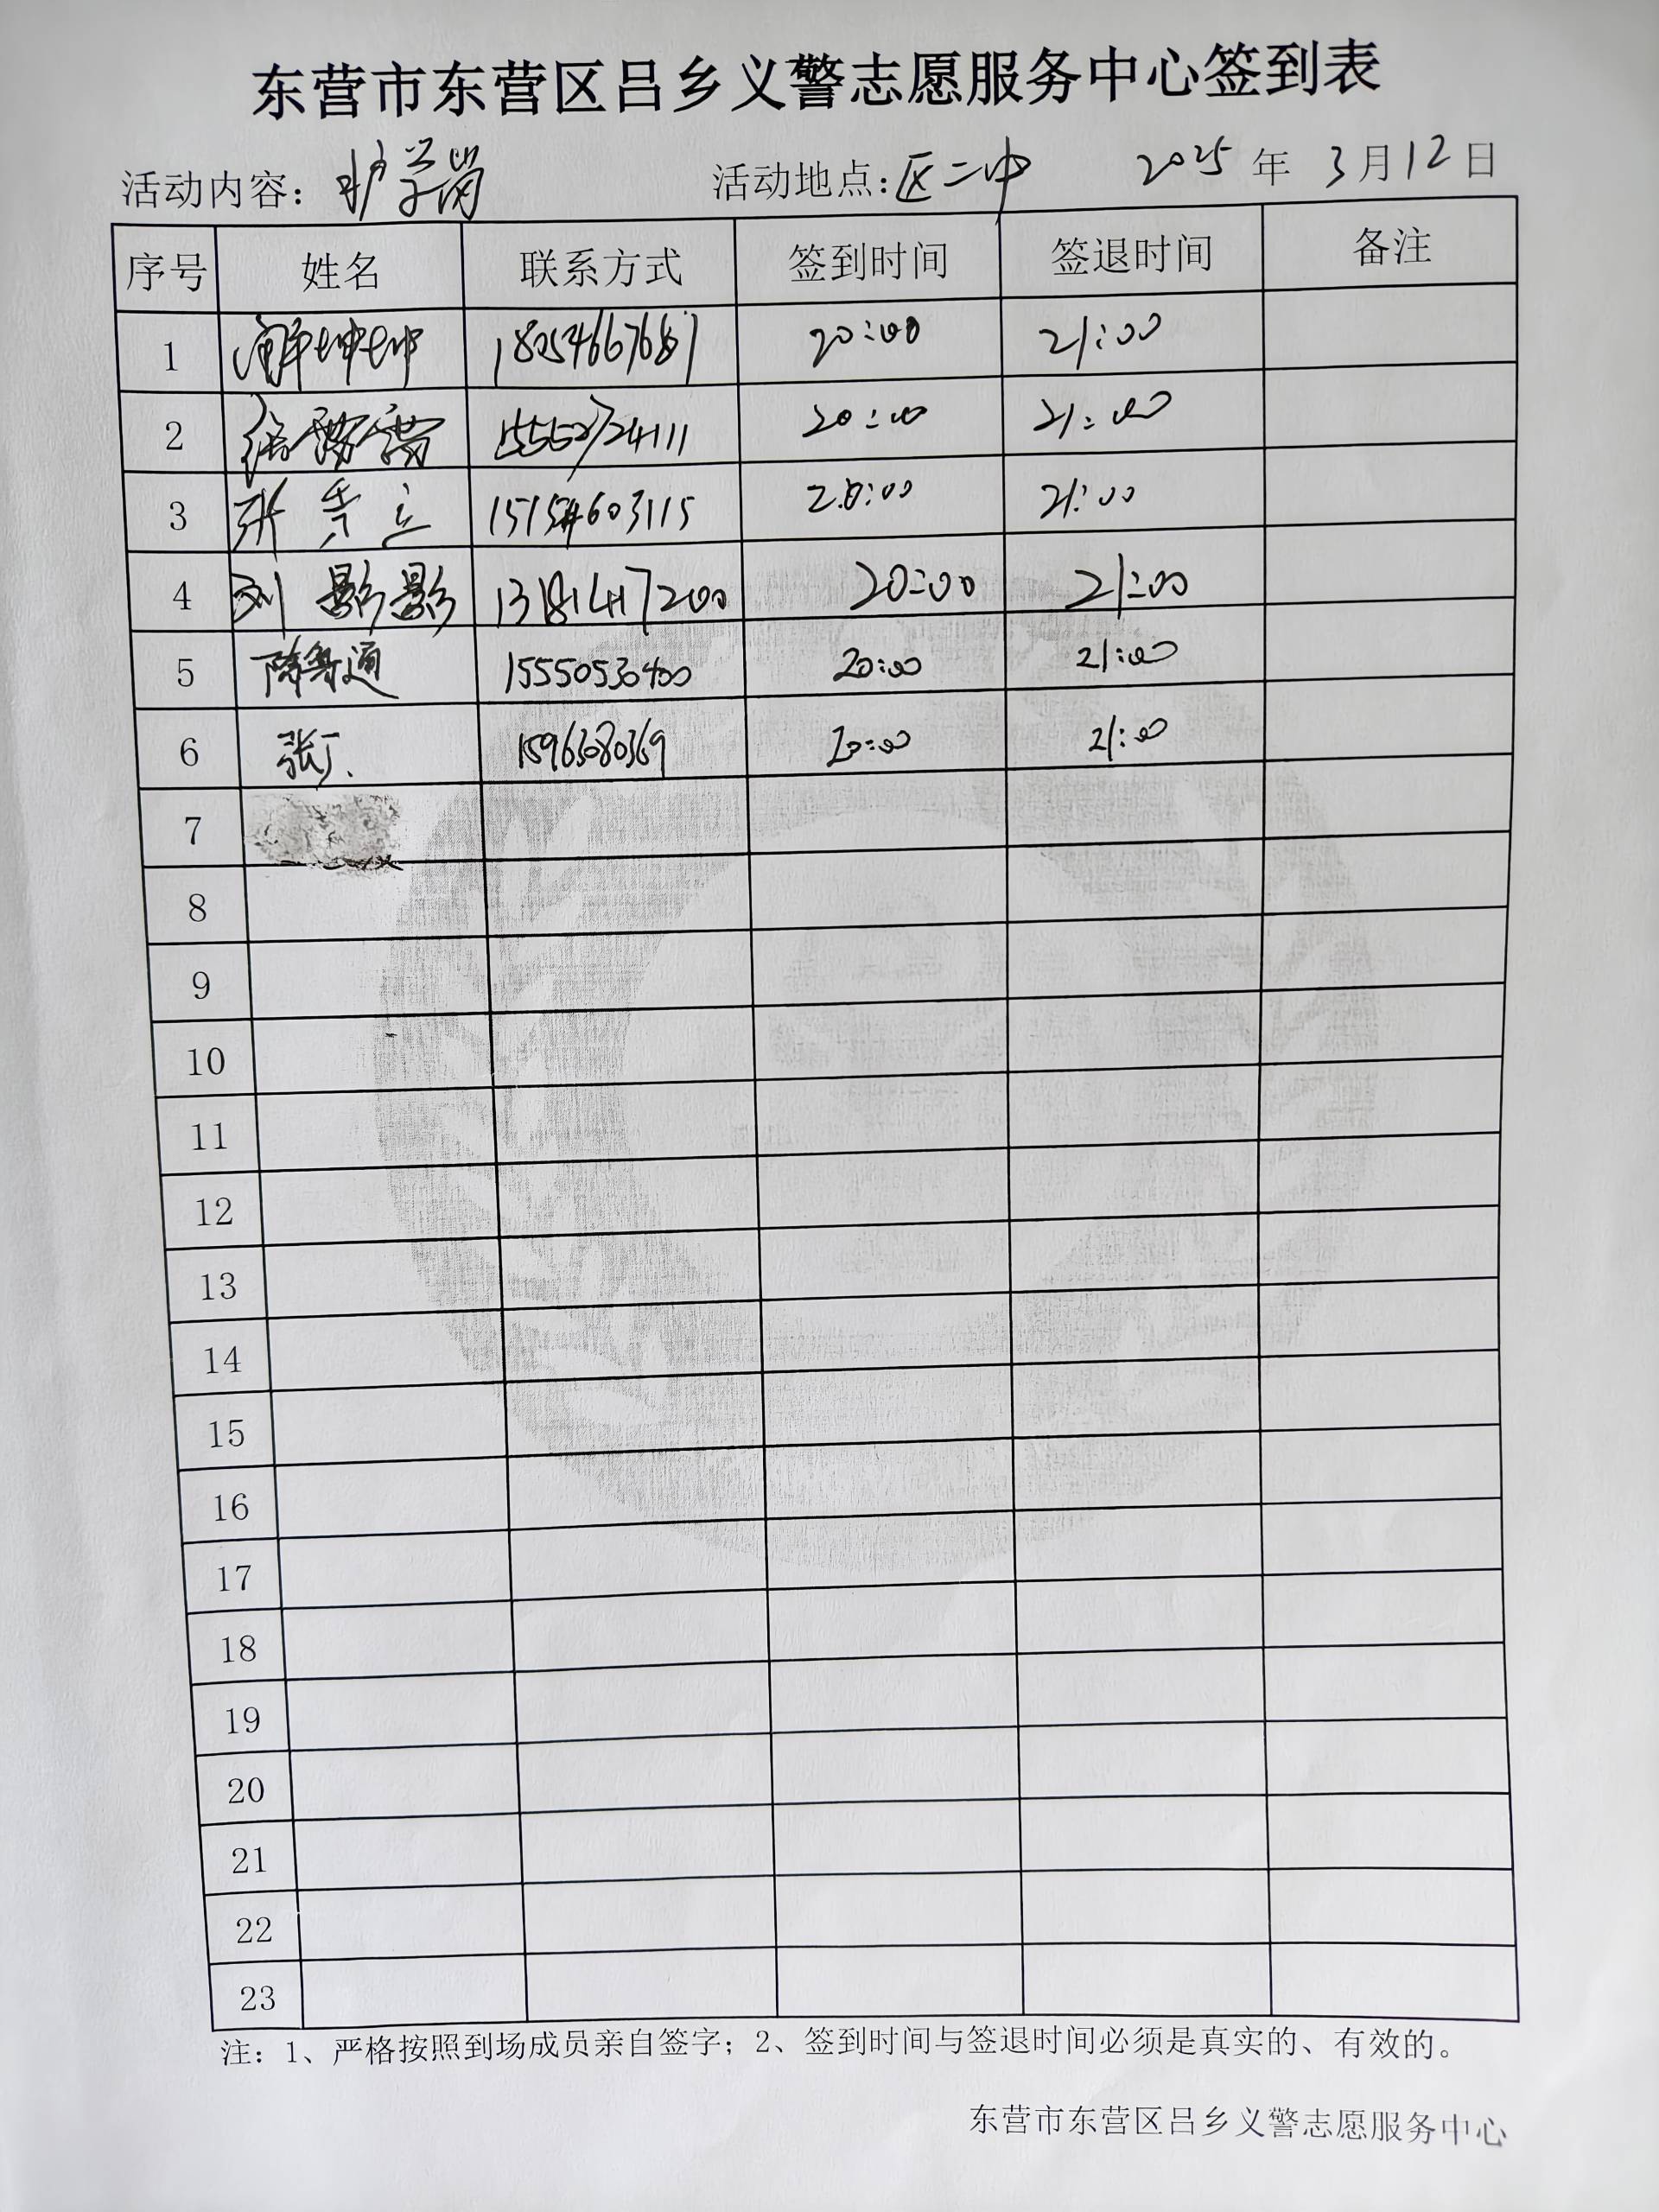 东营市东营区吕乡义警志愿服务中心签到表
活动内容：护学岗 活动地点：区二中 2025年3月12日
序号 姓名 联系方式 签到时间 签退时间 备注
1 解坤坤 18254667681 20:00 21:00
2 20:00 21:00
3 张秀立 15154603115 20:00 21:00
4 刘影影 20:00 21:00
5 陈鲁通 15550530400 20:00 21:00
6 张广 15963080369 20:00 21:00
7
8
9
10
11
12
13
14
15
16
17
18
19
20
21
22
23
注：1、严格按照到场成员亲自签字；2、签到时间与签退时间必须是真实的、有效的。
东营市东营区吕乡义警志愿服务中心